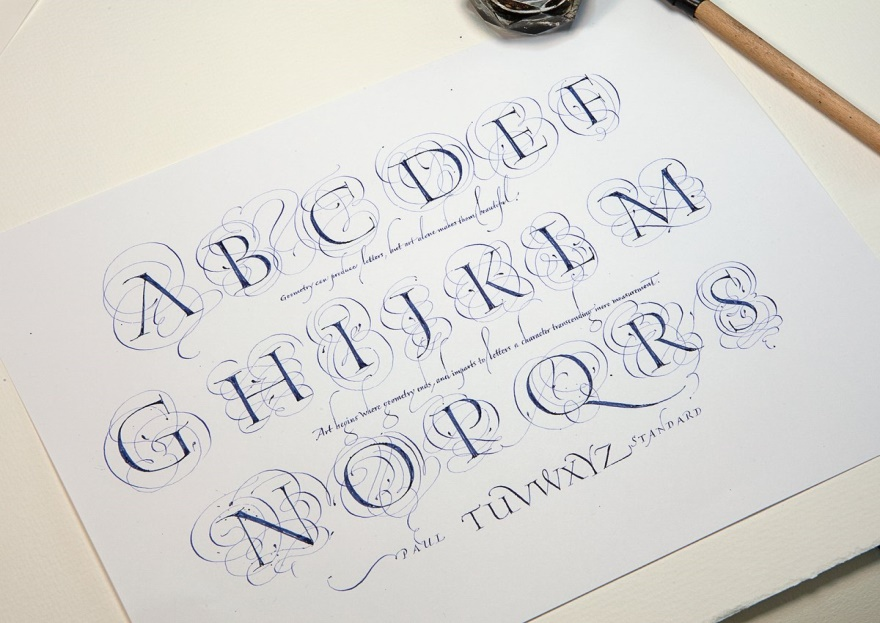 A B C D E F
Geometry can produce letters, but art alone makes them beautiful.
G H I J K L M
Art begins where geometry ends, and imparts to letters a character transcending mere measurement.
N O P Q R S
PAUL TUVWXYZ STANDARD